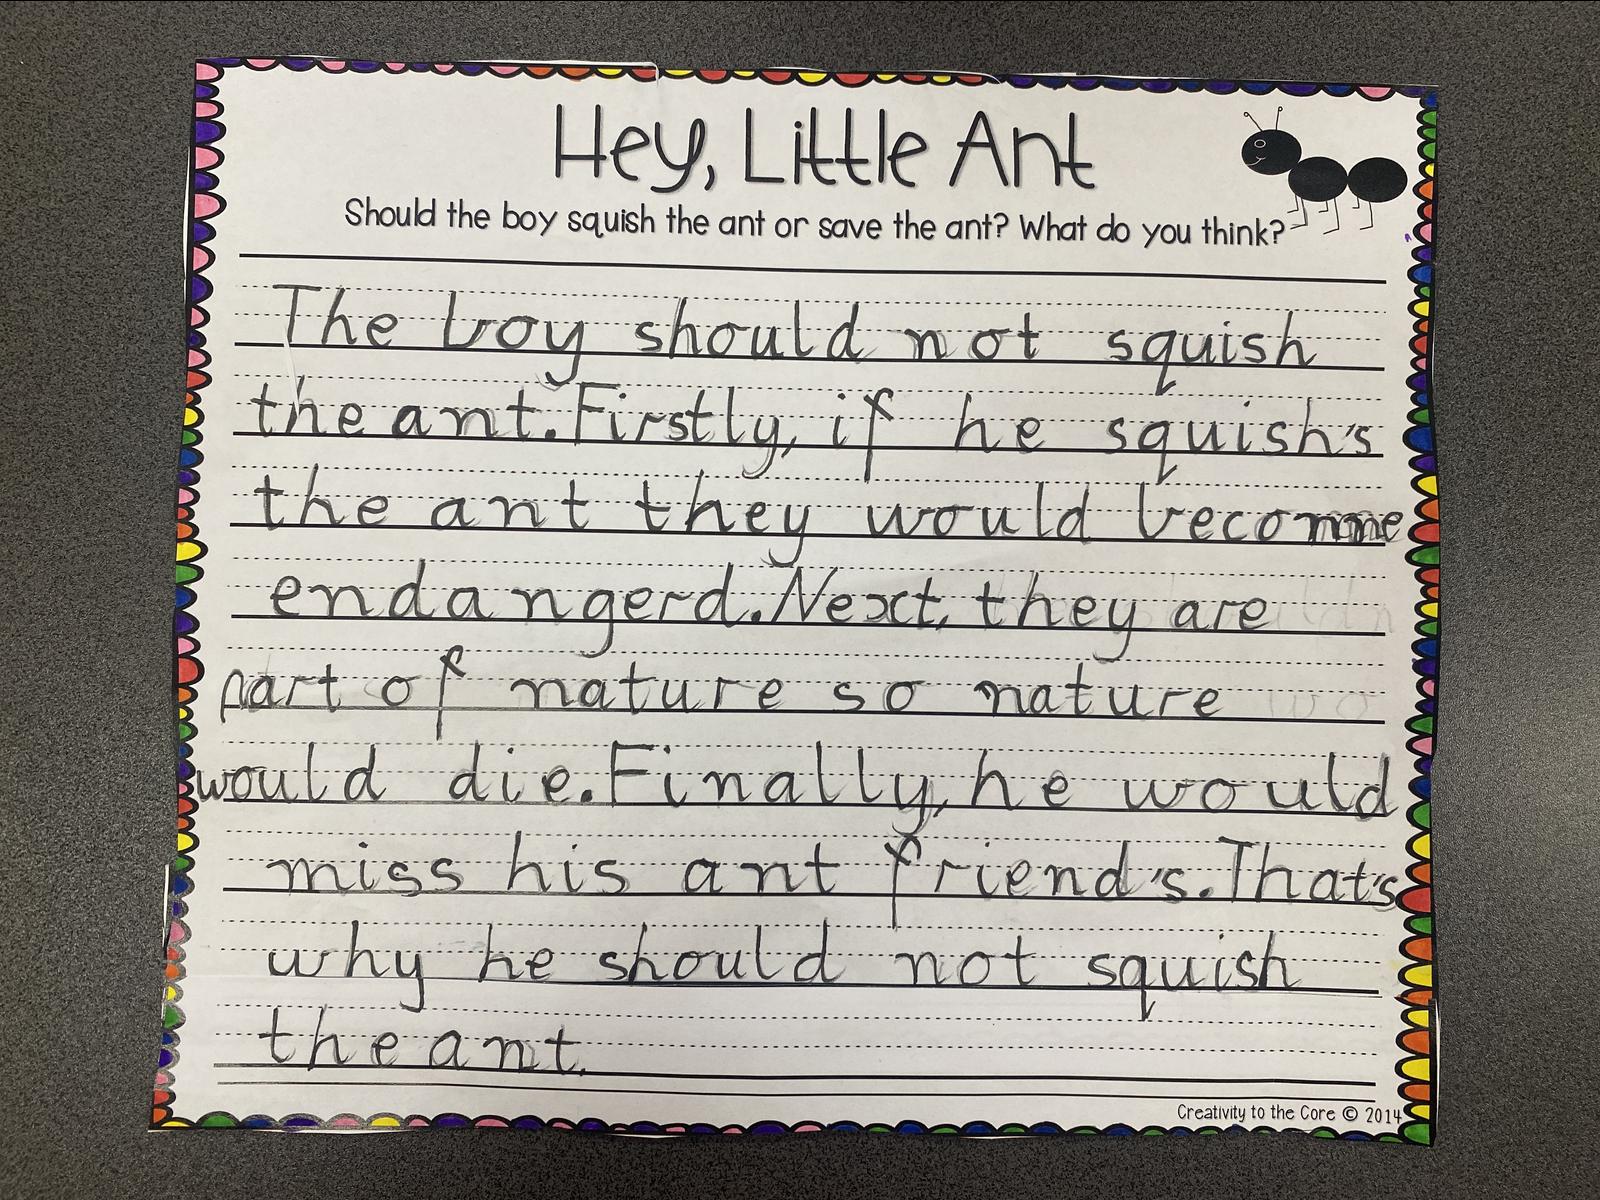 Hey, Little Ant
Should the boy squish the ant or save the ant? What do you think?
The boy should not squish
the ant. Firstly, if he squish's
the ant they would become
endangerd. Next, they are
part of nature so nature
would die. Finally, he would
miss his ant friend's. That's
why he should not squish
the ant.
Creativity to the Core © 2014